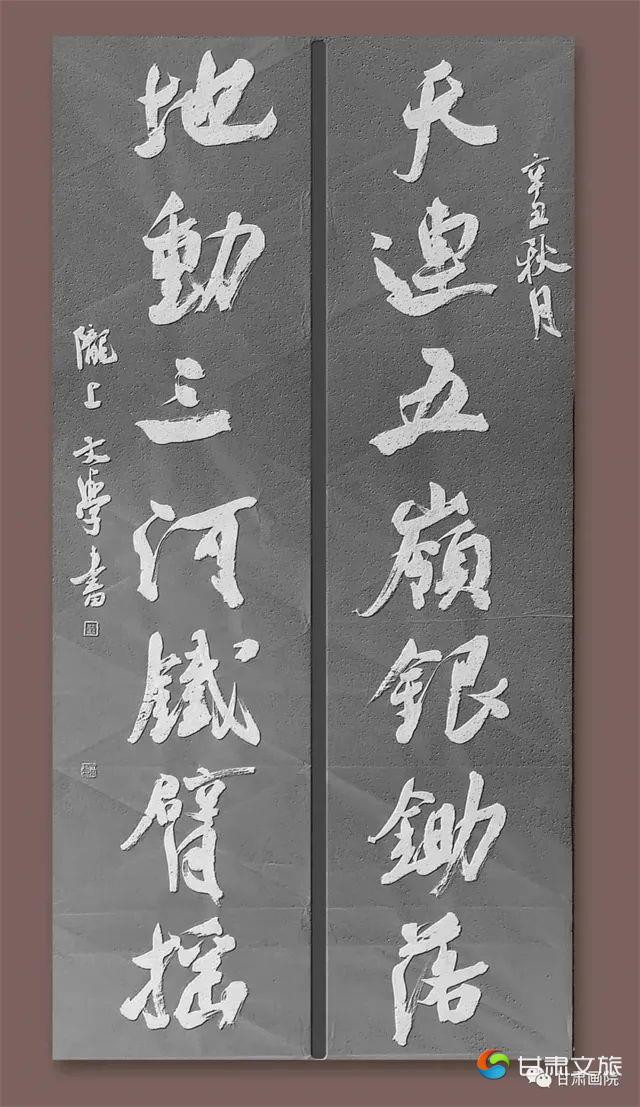 辛丑秋月
天连五嶺银鋤落
地動三河鐵臂摇
隴上文學書
甘肃文旅
甘肃画院